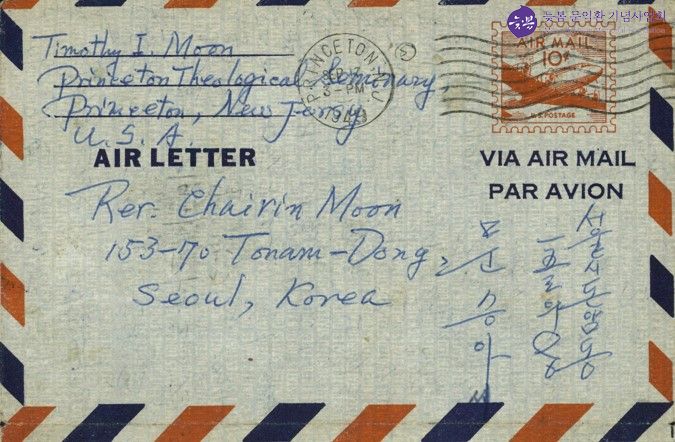 늦봄 문익환 기념사업회
늦봄
Timothy I. Moon
Princeton Theological Seminary,
Princeton, New Jersey
U.S.A.
PRINCETON
SEP 17
3-PM
AIR MAIL
10¢
U.S. POSTAGE
AIR LETTER
VIA AIR MAIL
PAR AVION
Rev. Chairin Moon
153-70 Tonam-Dong,
Seoul, Korea
서울시돈암동